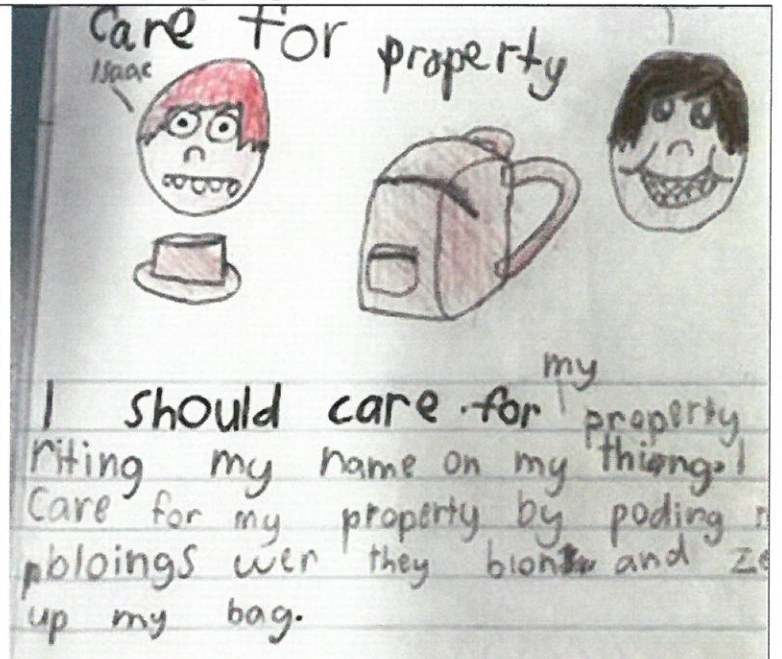 Care for property
Isaac
I should care for my property
riting my name on my thiong. I
Care for my property by poding
pbloings wer they blon and
up my bag.